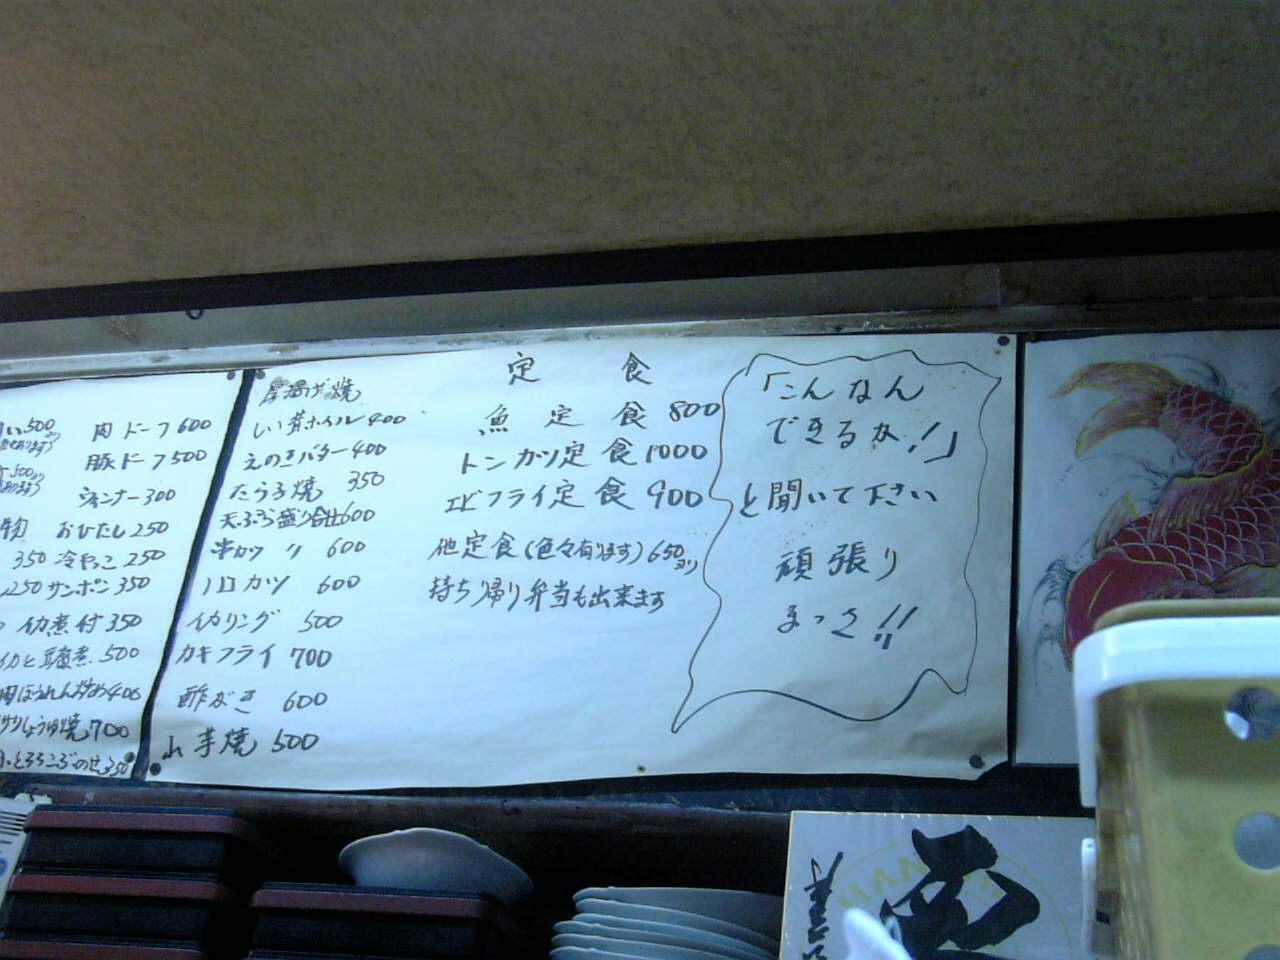 500
肉ドーフ 600
豚ドーフ 500
ウィンナー 300
おひたし 250
350 冷やっこ 250
250 サンポン 350
イカ煮付 350
500
ほうれん炒め 400
しょうゆ焼 700
とろろこぶのせ 350
厚揚げ焼
しい茸ホイル 400
えのきバター 400
たらこ焼 350
天ぷら盛り合せ 600
串カツ 〃 600
ハムカツ 600
イカリング 500
カキフライ 700
酢がき 600
山芋焼 500
定食
魚定食 800
トンカツ定食 1000
エビフライ定食 900
他定食(色々有ります) 650ヨリ
持ち帰り弁当も出来ます
「こんなん
できるか!」
と聞いて下さい
頑張り
まっさ!!